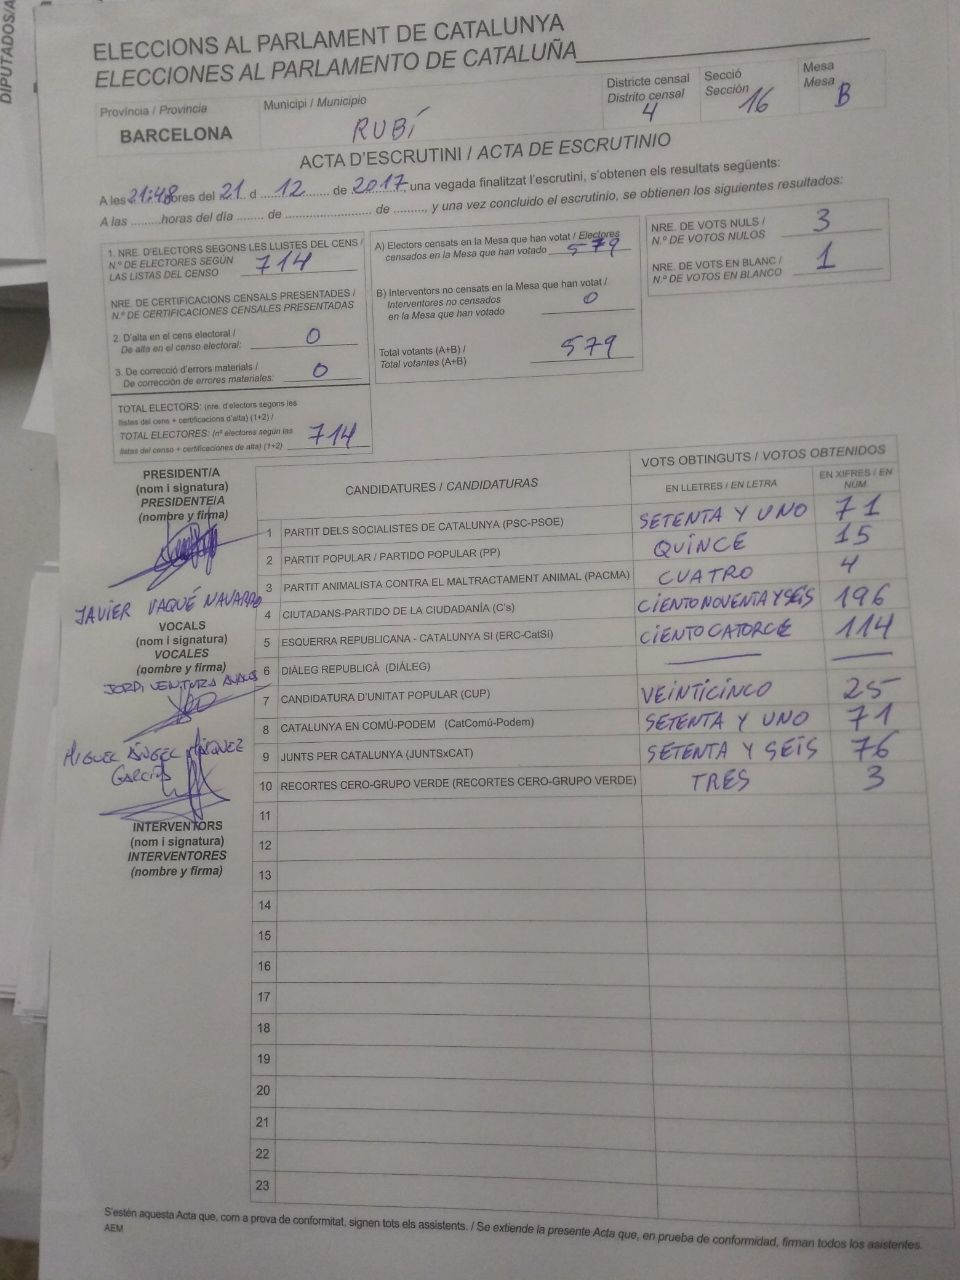 DIPUTADOS/A
ELECCIONS AL PARLAMENT DE CATALUNYA
ELECCIONES AL PARLAMENTO DE CATALUÑA
Província / Provincia
BARCELONA
Municipi / Municipio
RUBÍ
Districte censal
Distrito censal
4
Secció
Sección
16
Mesa
Mesa
B
ACTA D'ESCRUTINI / ACTA DE ESCRUTINIO
A les 21:48 hores del 21 d 12 de 2017, una vegada finalitzat l'escrutini, s'obtenen els resultats següents:
A las ......... horas del día ........ de .......................... de ........., y una vez concluido el escrutinio, se obtienen los siguientes resultados:
1. NRE. D'ELECTORS SEGONS LES LLISTES DEL CENS /
N.º DE ELECTORES SEGÚN
LAS LISTAS DEL CENSO
714
NRE. DE CERTIFICACIONS CENSALS PRESENTADES /
N.º DE CERTIFICACIONES CENSALES PRESENTADAS
2. D'alta en el cens electoral /
De alta en el censo electoral:
0
3. De correcció d'errors materials /
De corrección de errores materiales:
0
TOTAL ELECTORS: (nre. d'electors segons les
llistes del cens + certificacions d'alta) (1+2) /
TOTAL ELECTORES: (nº electores según las
listas del censo + certificaciones de alta) (1+2)
714
A) Electors censats en la Mesa que han votat / Electores
censados en la Mesa que han votado
579
B) Interventors no censats en la Mesa que han votat /
Interventores no censados
en la Mesa que han votado
0
Total votants (A+B) /
Total votantes (A+B)
579
NRE. DE VOTS NULS /
N.º DE VOTOS NULOS
3
NRE. DE VOTS EN BLANC /
N.º DE VOTOS EN BLANCO
1
PRESIDENT/A
(nom i signatura)
PRESIDENTE/A
(nombre y firma)
JAVIER VAQUÉ NAVARRO
VOCALS
(nom i signatura)
VOCALES
(nombre y firma)
JORDI VENTURA
MIGUEL ÁNGEL MÁRQUEZ
GARCÍA
INTERVENTORS
(nom i signatura)
INTERVENTORES
(nombre y firma)
CANDIDATURES / CANDIDATURAS
VOTS OBTINGUTS / VOTOS OBTENIDOS
EN LLETRES / EN LETRA
EN XIFRES / EN
NÚM.
1 PARTIT DELS SOCIALISTES DE CATALUNYA (PSC-PSOE) SETENTA Y UNO 71
2 PARTIT POPULAR / PARTIDO POPULAR (PP) QUINCE 15
3 PARTIT ANIMALISTA CONTRA EL MALTRACTAMENT ANIMAL (PACMA) CUATRO 4
4 CIUTADANS-PARTIDO DE LA CIUDADANÍA (C's) CIENTO NOVENTA Y SEIS 196
5 ESQUERRA REPUBLICANA - CATALUNYA SI (ERC-CatSí) CIENTO CATORCE 114
6 DIÀLEG REPUBLICÀ (DIÀLEG)
7 CANDIDATURA D'UNITAT POPULAR (CUP) VEINTICINCO 25
8 CATALUNYA EN COMÚ-PODEM (CatComú-Podem) SETENTA Y UNO 71
9 JUNTS PER CATALUNYA (JUNTSxCAT) SETENTA Y SEIS 76
10 RECORTES CERO-GRUPO VERDE (RECORTES CERO-GRUPO VERDE) TRES 3
11
12
13
14
15
16
17
18
19
20
21
22
23
S'estén aquesta Acta que, com a prova de conformitat, signen tots els assistents. / Se extiende la presente Acta que, en prueba de conformidad, firman todos los asistentes.
AEM